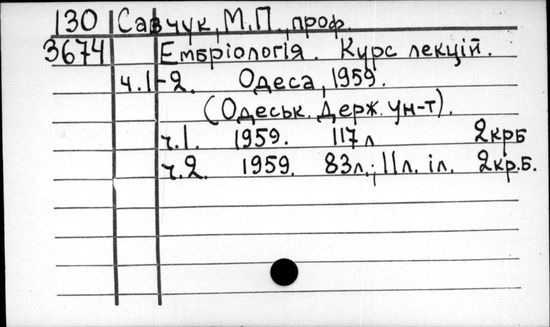 130 Савчук, М.П., проф.
3674 Ембріологія. Курс лекцій.
ч.1-2. Одеса, 1959.
(Одеськ. Держ. ун-т).
ч.1. 1959. 117л 2крб
ч.2. 1959. 83л.; 11л. іл. 2кр.б.